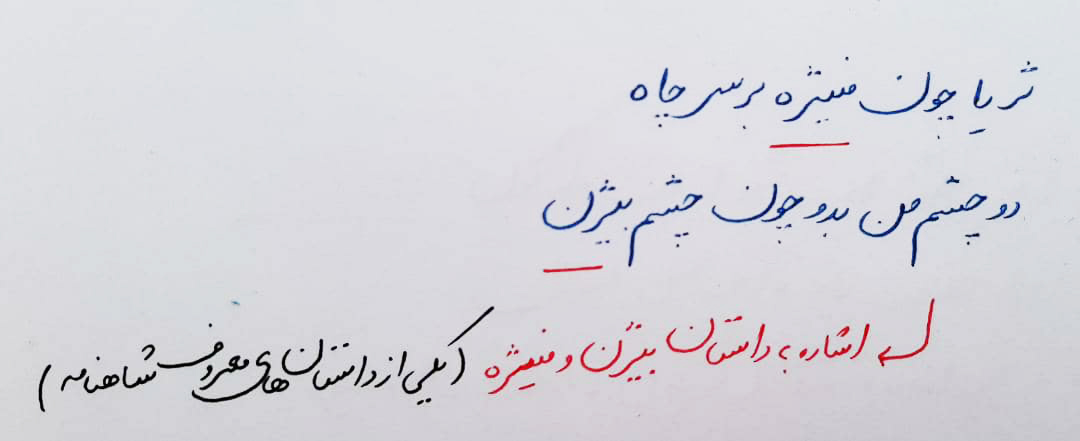 ثریا چون منیژه بر سر چاه
دو چشم من بدو چون چشم بیژن
اشاره به داستان بیژن و منیژه (یکی از داستان‌های معروف شاهنامه)